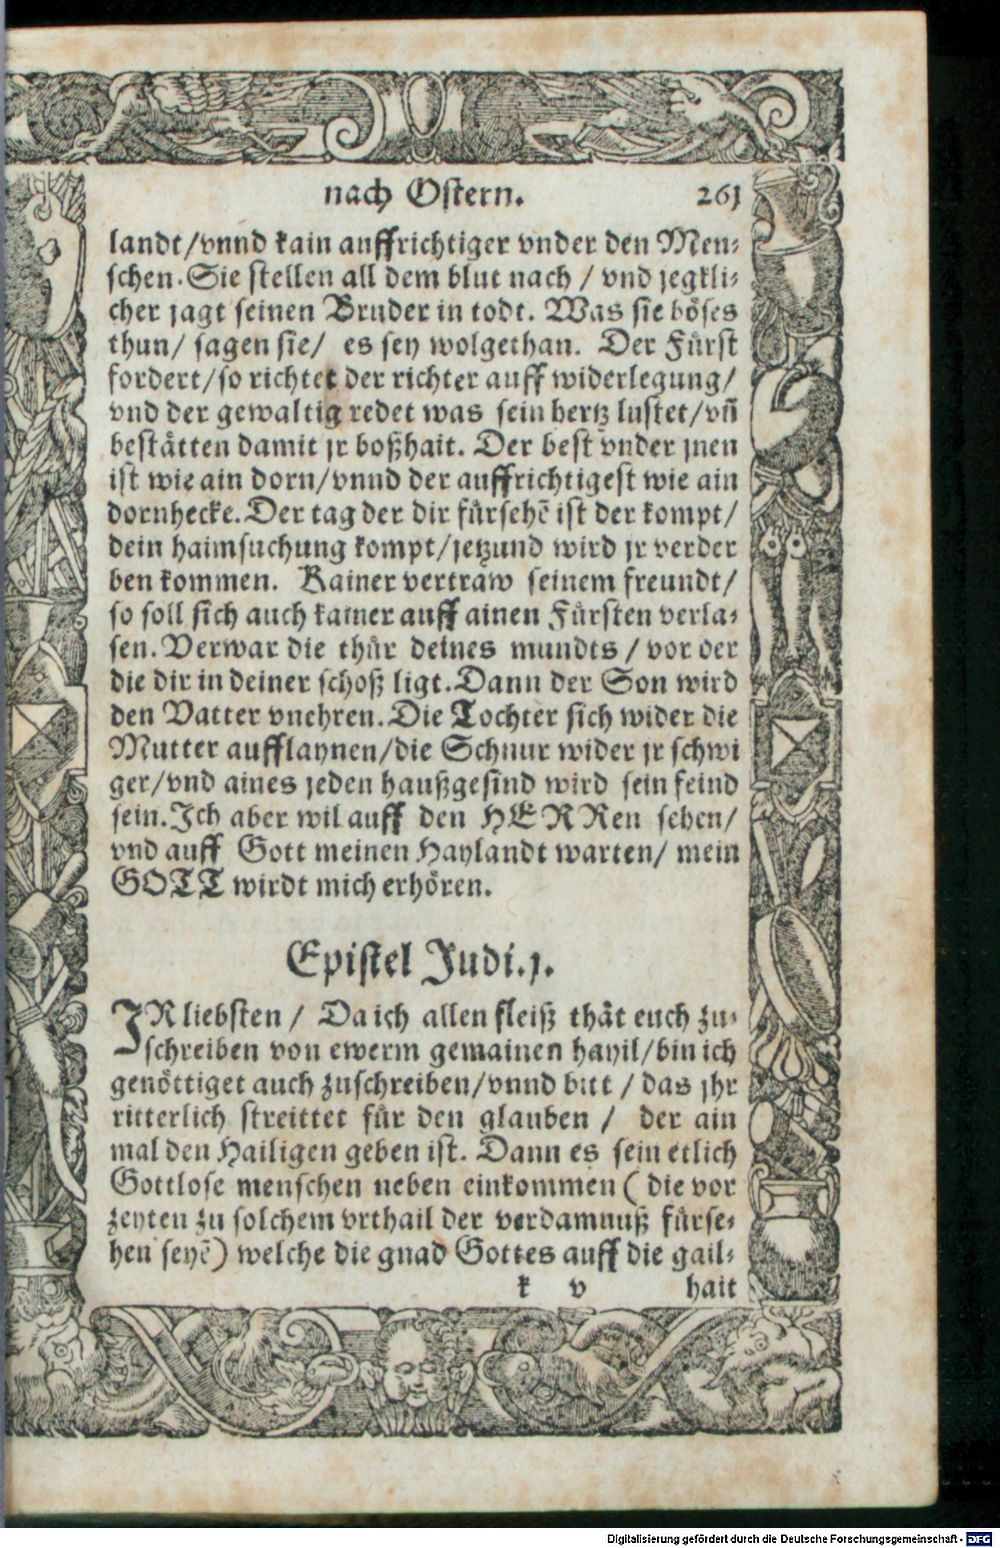 nach Ostern. 261
landt/vnnd kain auffrichtiger vnder den Men-
schen. Sie stellen all dem blut nach / vnd jegkli-
cher jagt seinen Bruder in todt. Was sie böses
thun/ sagen sie/ es sey wolgethan. Der Fürst
fordert/so richtet der richter auff widerlegung/
vnd der gewaltig redet was sein hertz lustet/vñ
bestätten damit jr boßhait. Der best vnder jnen
ist wie ain dorn/vnnd der auffrichtigest wie ain
dornhecke. Der tag der dir fürsehẽ ist der kompt/
dein haimsuchung kompt/jetzund wird jr verder
ben kommen. Kainer vertraw seinem freundt/
so soll sich auch kainer auff ainen Fürsten verla-
sen. Verwar die thür deines mundts / vor der
die dir in deiner schoß ligt. Dann der Son wird
den Vatter vnehren. Die Tochter sich wider die
Mutter aufflaynen/die Schnur wider jr schwi
ger/vnd aines jeden haußgesind wird sein feind
sein. Ich aber wil auff den HERRen sehen/
vnd auff Gott meinen Haylandt warten/ mein
GOTT wirdt mich erhören.
Epistel Judi.j.
IR liebsten / Da ich allen fleiß thät euch zu-
schreiben von ewerm gemainen hayil/bin ich
genöttiget auch zuschreiben/vnnd bitt / das jhr
ritterlich streittet für den glauben / der ain
mal den Hailigen geben ist. Dann es sein etlich
Gottlose menschen neben einkommen ( die vor
zeyten zu solchem vrthail der verdamnuß fürse-
hen seyẽ) welche die gnad Gottes auff die gail-
k v hait
Digitalisierung gefördert durch die Deutsche Forschungsgemeinschaft - DFG